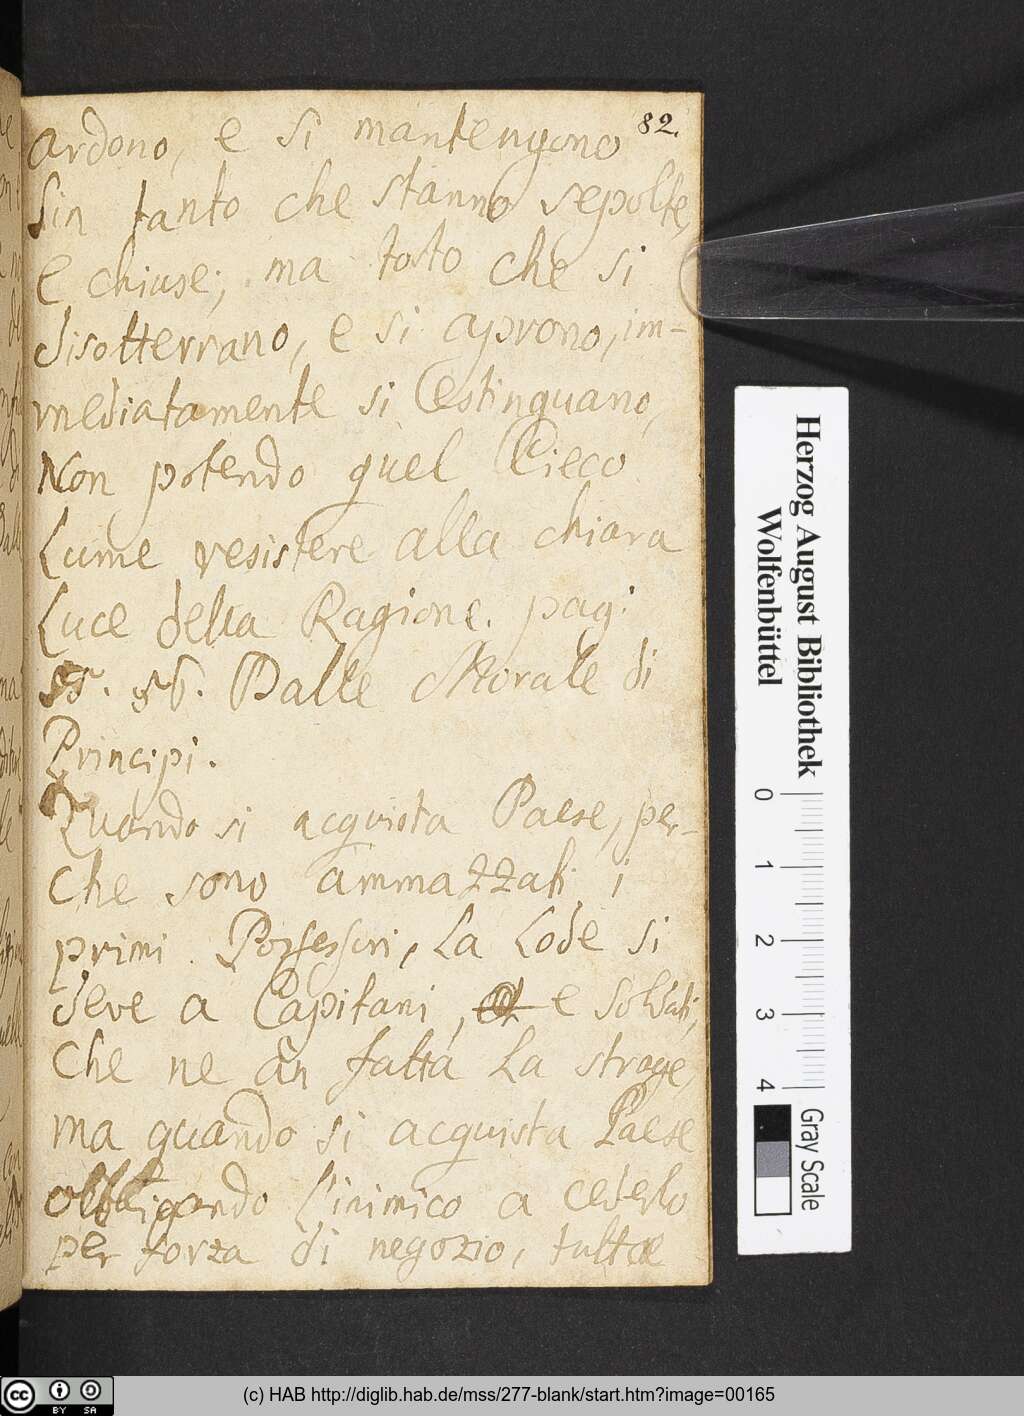 82.
ardono, e si mantengono
sin tanto che stanno sepolte,
e chiuse; ma tosto che si
disotterrano, e si aprono, im-
mediatamente si estinguano,
Non potendo quel Cieco
Lume resistere alla chiara
Luce della Ragione. pag:
55. 56. Dalle Morale di
Principi.
Quando si acquista Paese, per-
che sono ammazzati i
primi Possessori, La Lode si
deve a Capitani, e soldati,
che ne àn fatta La strage,
ma quando si acquista Paese
obbligando l'inimico a cederlo
per forza di negozio, tutta
Herzog August Bibliothek
Wolfenbüttel
0 1 2 3 4
Gray Scale
CC BY SA
(c) HAB http://diglib.hab.de/mss/277-blank/start.htm?image=00165